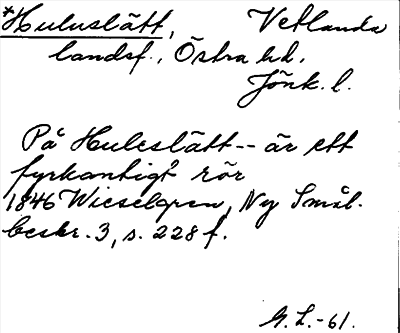 *Huluslätt, Vetlanda
landsf., Östra hd.
Jönk. l.
På Huleslätt -- är ett
fyrkantigt rör
1846 Wieselgren, Ny Smål.
beskr. 3, s. 228 f.
G. L. -61.